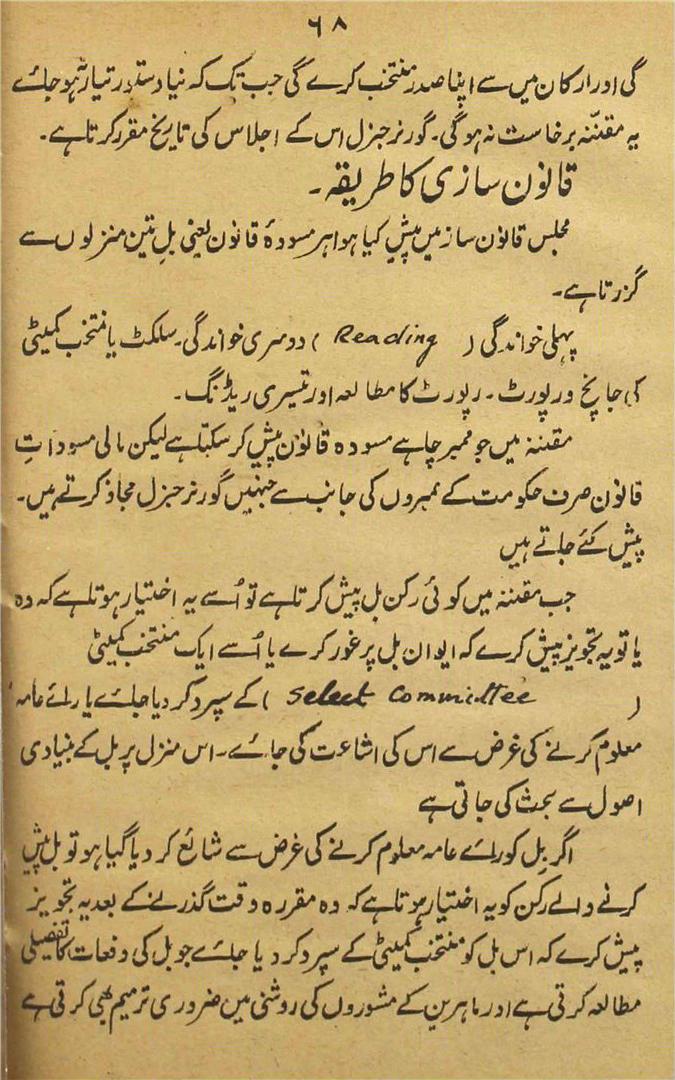 ۶۸
گی اور ارکان میں سے اپنا صدر منتخب کرے گی جب تک کہ نیا دستور تیار نہ ہو جائے
یہ مقننّہ برخاست نہ ہوگی۔ گورنر جنرل اس کے اجلاس کی تاریخ مقرر کرتا ہے۔
قانون سازی کا طریقہ۔
مجلس قانون ساز میں پیش کیا ہوا ہر مسودۂ قانون یعنی بل تین منزلوں سے
گزرتا ہے۔
پہلی خواندگی ( Reading ) دوسری خواندگی۔ سلکٹ یا منتخب کمیٹی
کی جانچ و رپورٹ۔ رپورٹ کا مطالعہ اور تیسری ریڈنگ۔
مقننہ میں جو ممبر چاہے مسودہ قانون پیش کر سکتا ہے لیکن مالی مسوداتِ
قانون صرف حکومت کے ممبروں کی جانب سے جنہیں گورنر جنرل مجاز کرتے ہیں۔
پیش کئے جاتے ہیں
جب مقننہ میں کوئی رکن بل پیش کرتا ہے تو اُسے یہ اختیار ہوتا ہے کہ وہ
یا تو یہ تجویز پیش کرے کہ ایوان بل پر غور کرے یا اُسے ایک منتخب کمیٹی
( Select Committee ) کے سپرد کر دیا جائے یا رائے عامہ
معلوم کرنے کی غرض سے اس کی اشاعت کی جائے۔ اس منزل پر بل کے بنیادی
اصول سے بحث کی جاتی ہے
اگر بِل کو رائے عامہ معلوم کرنے کی غرض سے شائع کر دیا گیا ہو تو بل پیش
کرنے والے رکن کو یہ اختیار ہوتا ہے کہ وہ مقررہ وقت گذرنے کے بعد یہ تجویز
پیش کرے کہ اس بل کو منتخب کمیٹی کے سپرد کر دیا جائے جو بل کی دفعات کا تفصیلی
مطالعہ کرتی ہے اور ماہرین کے مشوروں کی روشنی میں ضروری ترمیم بھی کرتی ہے